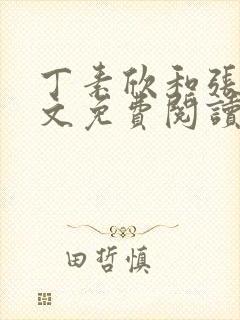 丁素欣和張
文免費閱讀
田哲慎